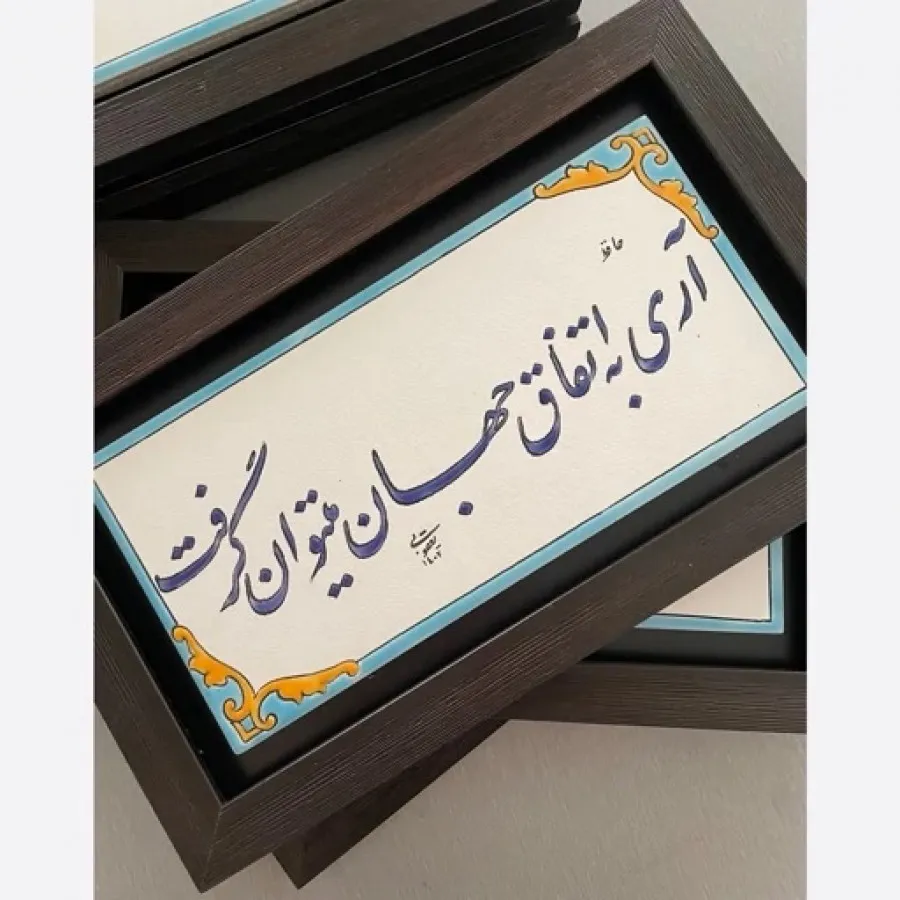 حافظ
آری به اتفاق جهان میتوان گرفت